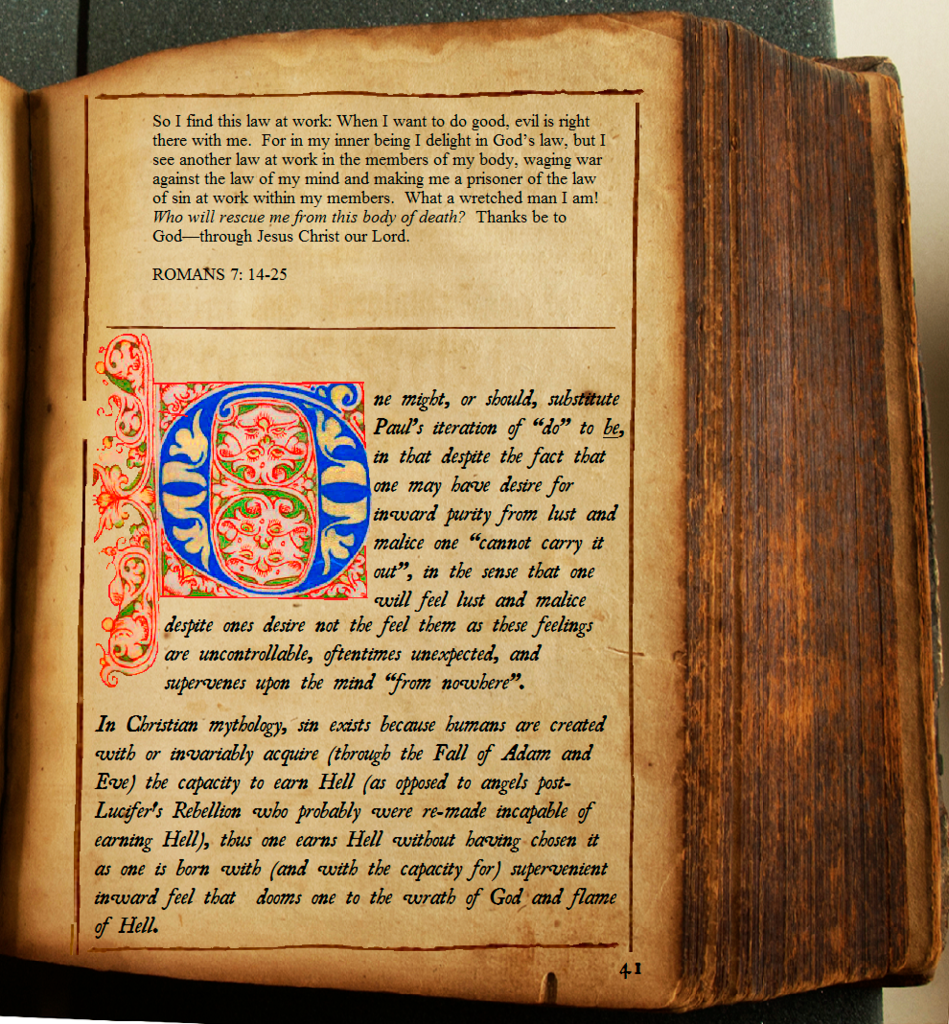 So I find this law at work: When I want to do good, evil is right
there with me.  For in my inner being I delight in God's law, but I
see another law at work in the members of my body, waging war
against the law of my mind and making me a prisoner of the law
of sin at work within my members.  What a wretched man I am!
Who will rescue me from this body of death?  Thanks be to
God—through Jesus Christ our Lord.
ROMANS 7: 14-25
One might, or should, substitute
Paul's iteration of “do” to be,
in that despite the fact that
one may have desire for
inward purity from lust and
malice one “cannot carry it
out”, in the sense that one
will feel lust and malice
despite ones desire not the feel them as these feelings
are uncontrollable, oftentimes unexpected, and
supervenes upon the mind “from nowhere”.
In Christian mythology, sin exists because humans are created
with or invariably acquire (through the Fall of Adam and
Eve) the capacity to earn Hell (as opposed to angels post-
Lucifer's Rebellion who probably were re-made incapable of
earning Hell), thus one earns Hell without having chosen it
as one is born with (and with the capacity for) supervenient
inward feel that  dooms one to the wrath of God and flame
of Hell.
41